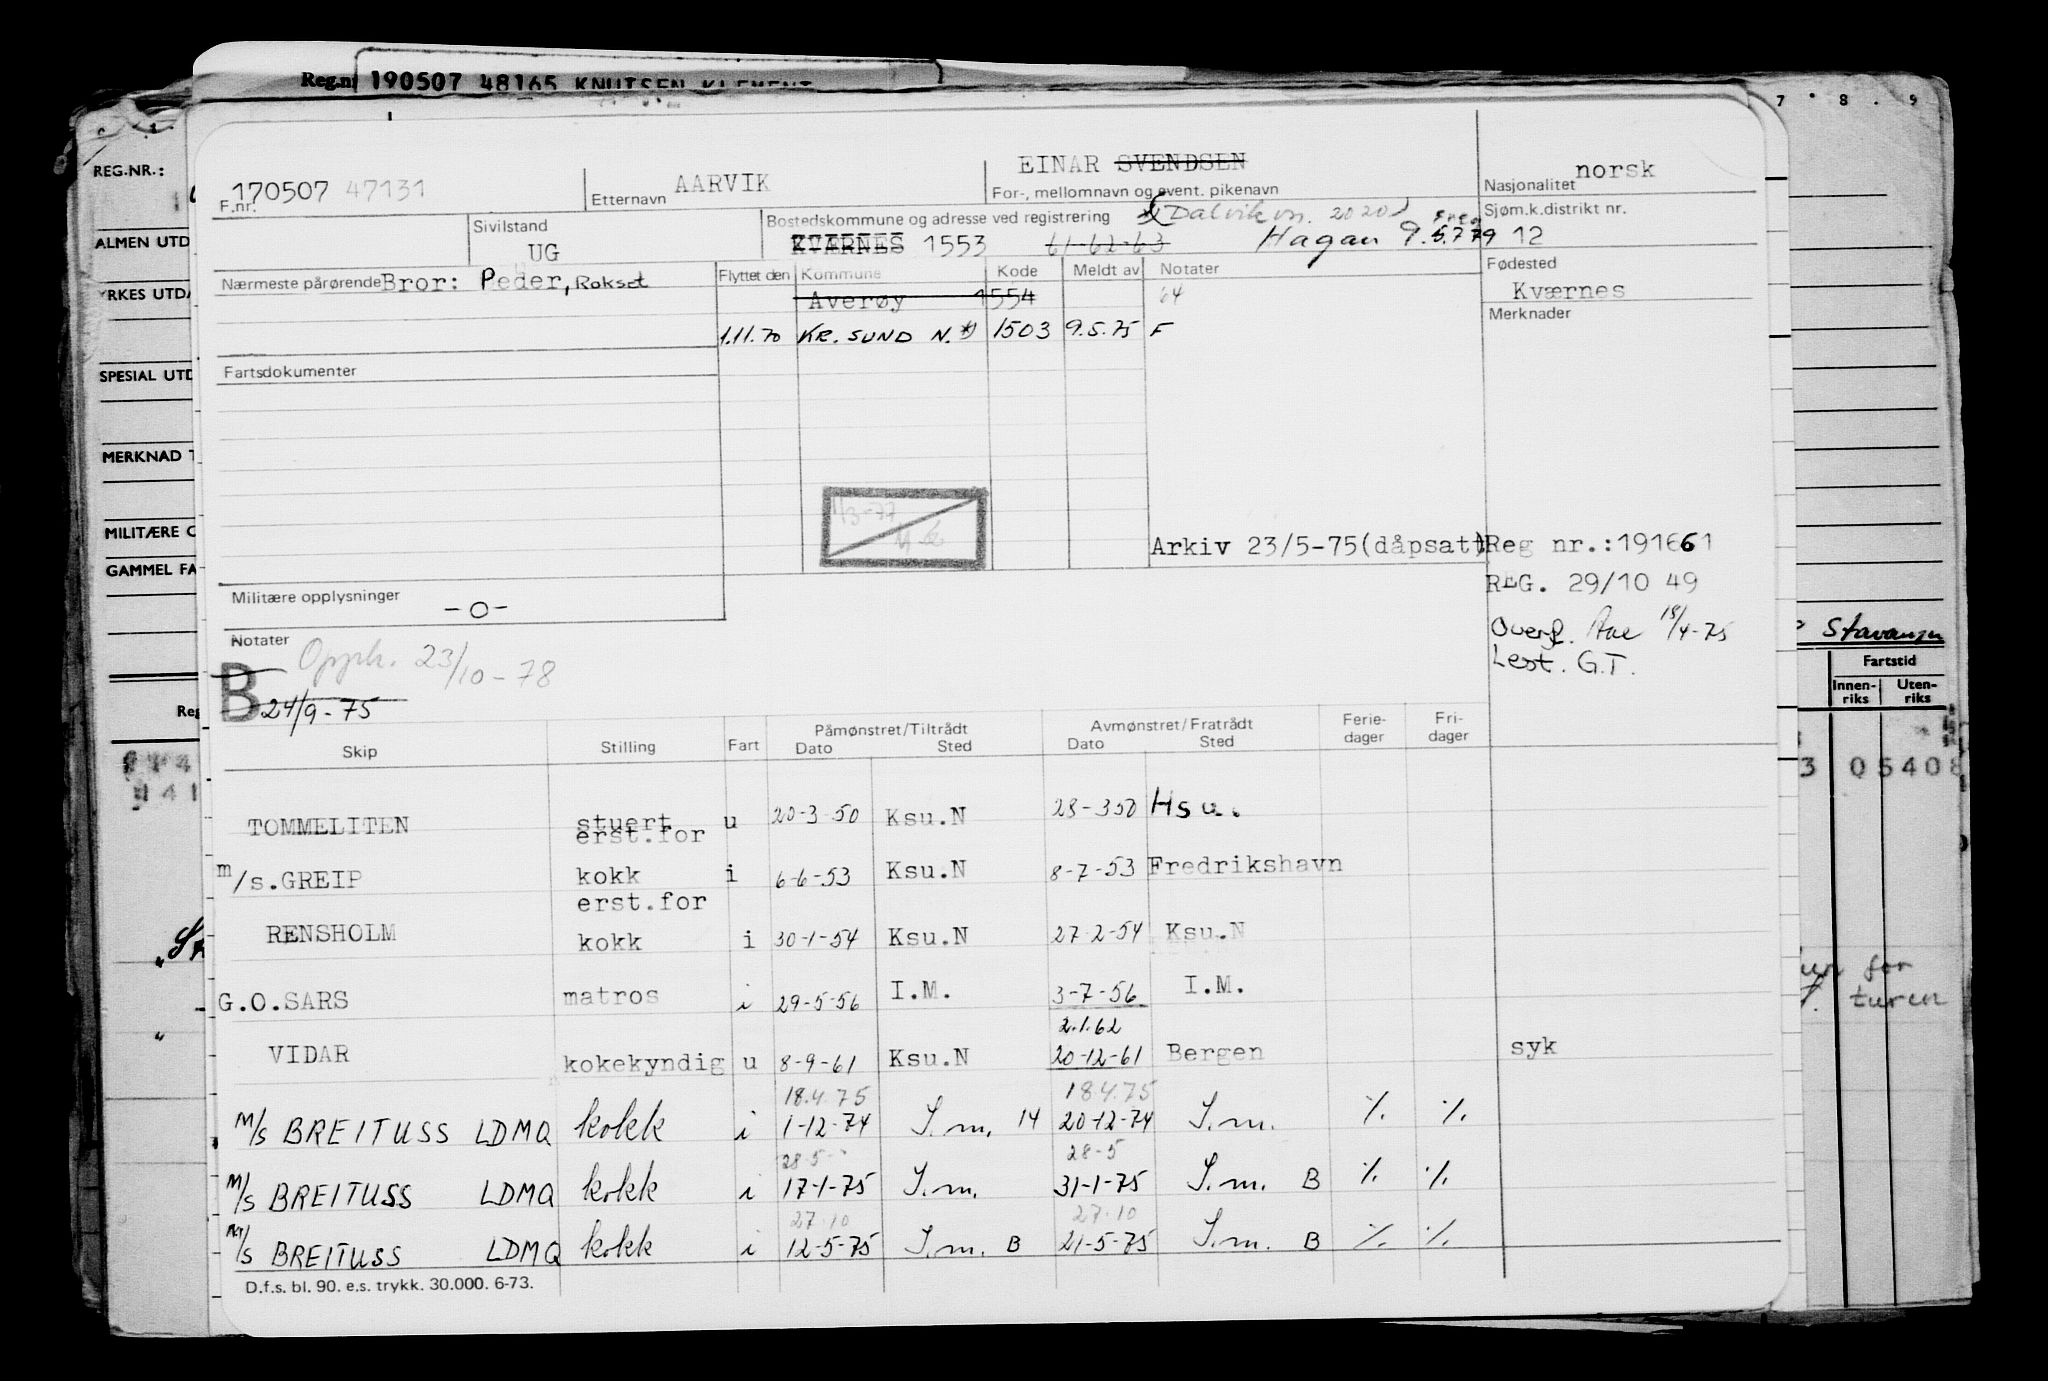 Reg.nr 190507 48165 KNUTSEN KLEMENT
7 8 . 9
REG.NR.:
ALMEN UTD
YRKES UTDA
SPESIAL UTD
MERKNAD T
MILITÆRE O
GAMMEL FA
Reg
170507 47131
F.nr.
AARVIK
Etternavn
EINAR SVENDSEN
For-, mellomnavn og event. pikenavn
norsk
Nasjonalitet
Sivilstand
UG
Bostedskommune og adresse ved registrering
Dalvikvn. 2020
KVÆRNES 1553 61-62-63
Hagan 9.5.779
Sjøm.k.distrikt nr.
12
Nærmeste pårørende Bror: Peder, Rokset
Flyttet den Kommune Kode Meldt av Notater
Averøy 1554 64
1.11.70 KR. SUND N. *) 1503 9.5.75 F
Fødested
Kværnes
Merknader
Fartsdokumenter
1/3-77
Arkiv 23/5-75(dåpsatt)
Reg nr.:191661
REG. 29/10 49
Overf. Aae 18/4-75
Lest. G.T.
Militære opplysninger -O-
Notater
Opph. 23/10-78
B 24/9-75
Stavanger
Fartstid
Innen-riks Uten-riks
3 05408
Skip Stilling Fart Påmønstret/Tiltrådt Dato Sted Avmønstret/Fratrådt Dato Sted Ferie-dager Fri-dager
TOMMELITEN stuert erst.for u 20-3-50 Ksu.N 28-350 Hsu.
m/s.GREIP kokk i 6-6-53 Ksu.N 8-7-53 Fredrikshavn
erst.for
RENSHOLM kokk i 30-1-54 Ksu.N 27-2-54 Ksu.N
G.O.SARS matros i 29-5-56 I.M. 3-7-56 I.M.
2.1.62
VIDAR kokekyndig u 8-9-61 Ksu.N 20-12-61 Bergen syk
18.4.75 18.4.75
M/S BREITUSS LDMQ kokk i 1-12-74 I.m. 14 20-12-74 I.m. ./. ./.
28-5 28-5
M/S BREITUSS LDMQ kokk i 17-1-75 I.m. 31-1-75 I.m. B ./. ./.
27.10 27.10
M/S BREITUSS LDMQ kokk i 12-5-75 I.m. B 21-5-75 I.m. B ./. ./.
for
turen
D.f.s. bl. 90. e.s. trykk. 30.000. 6-73.